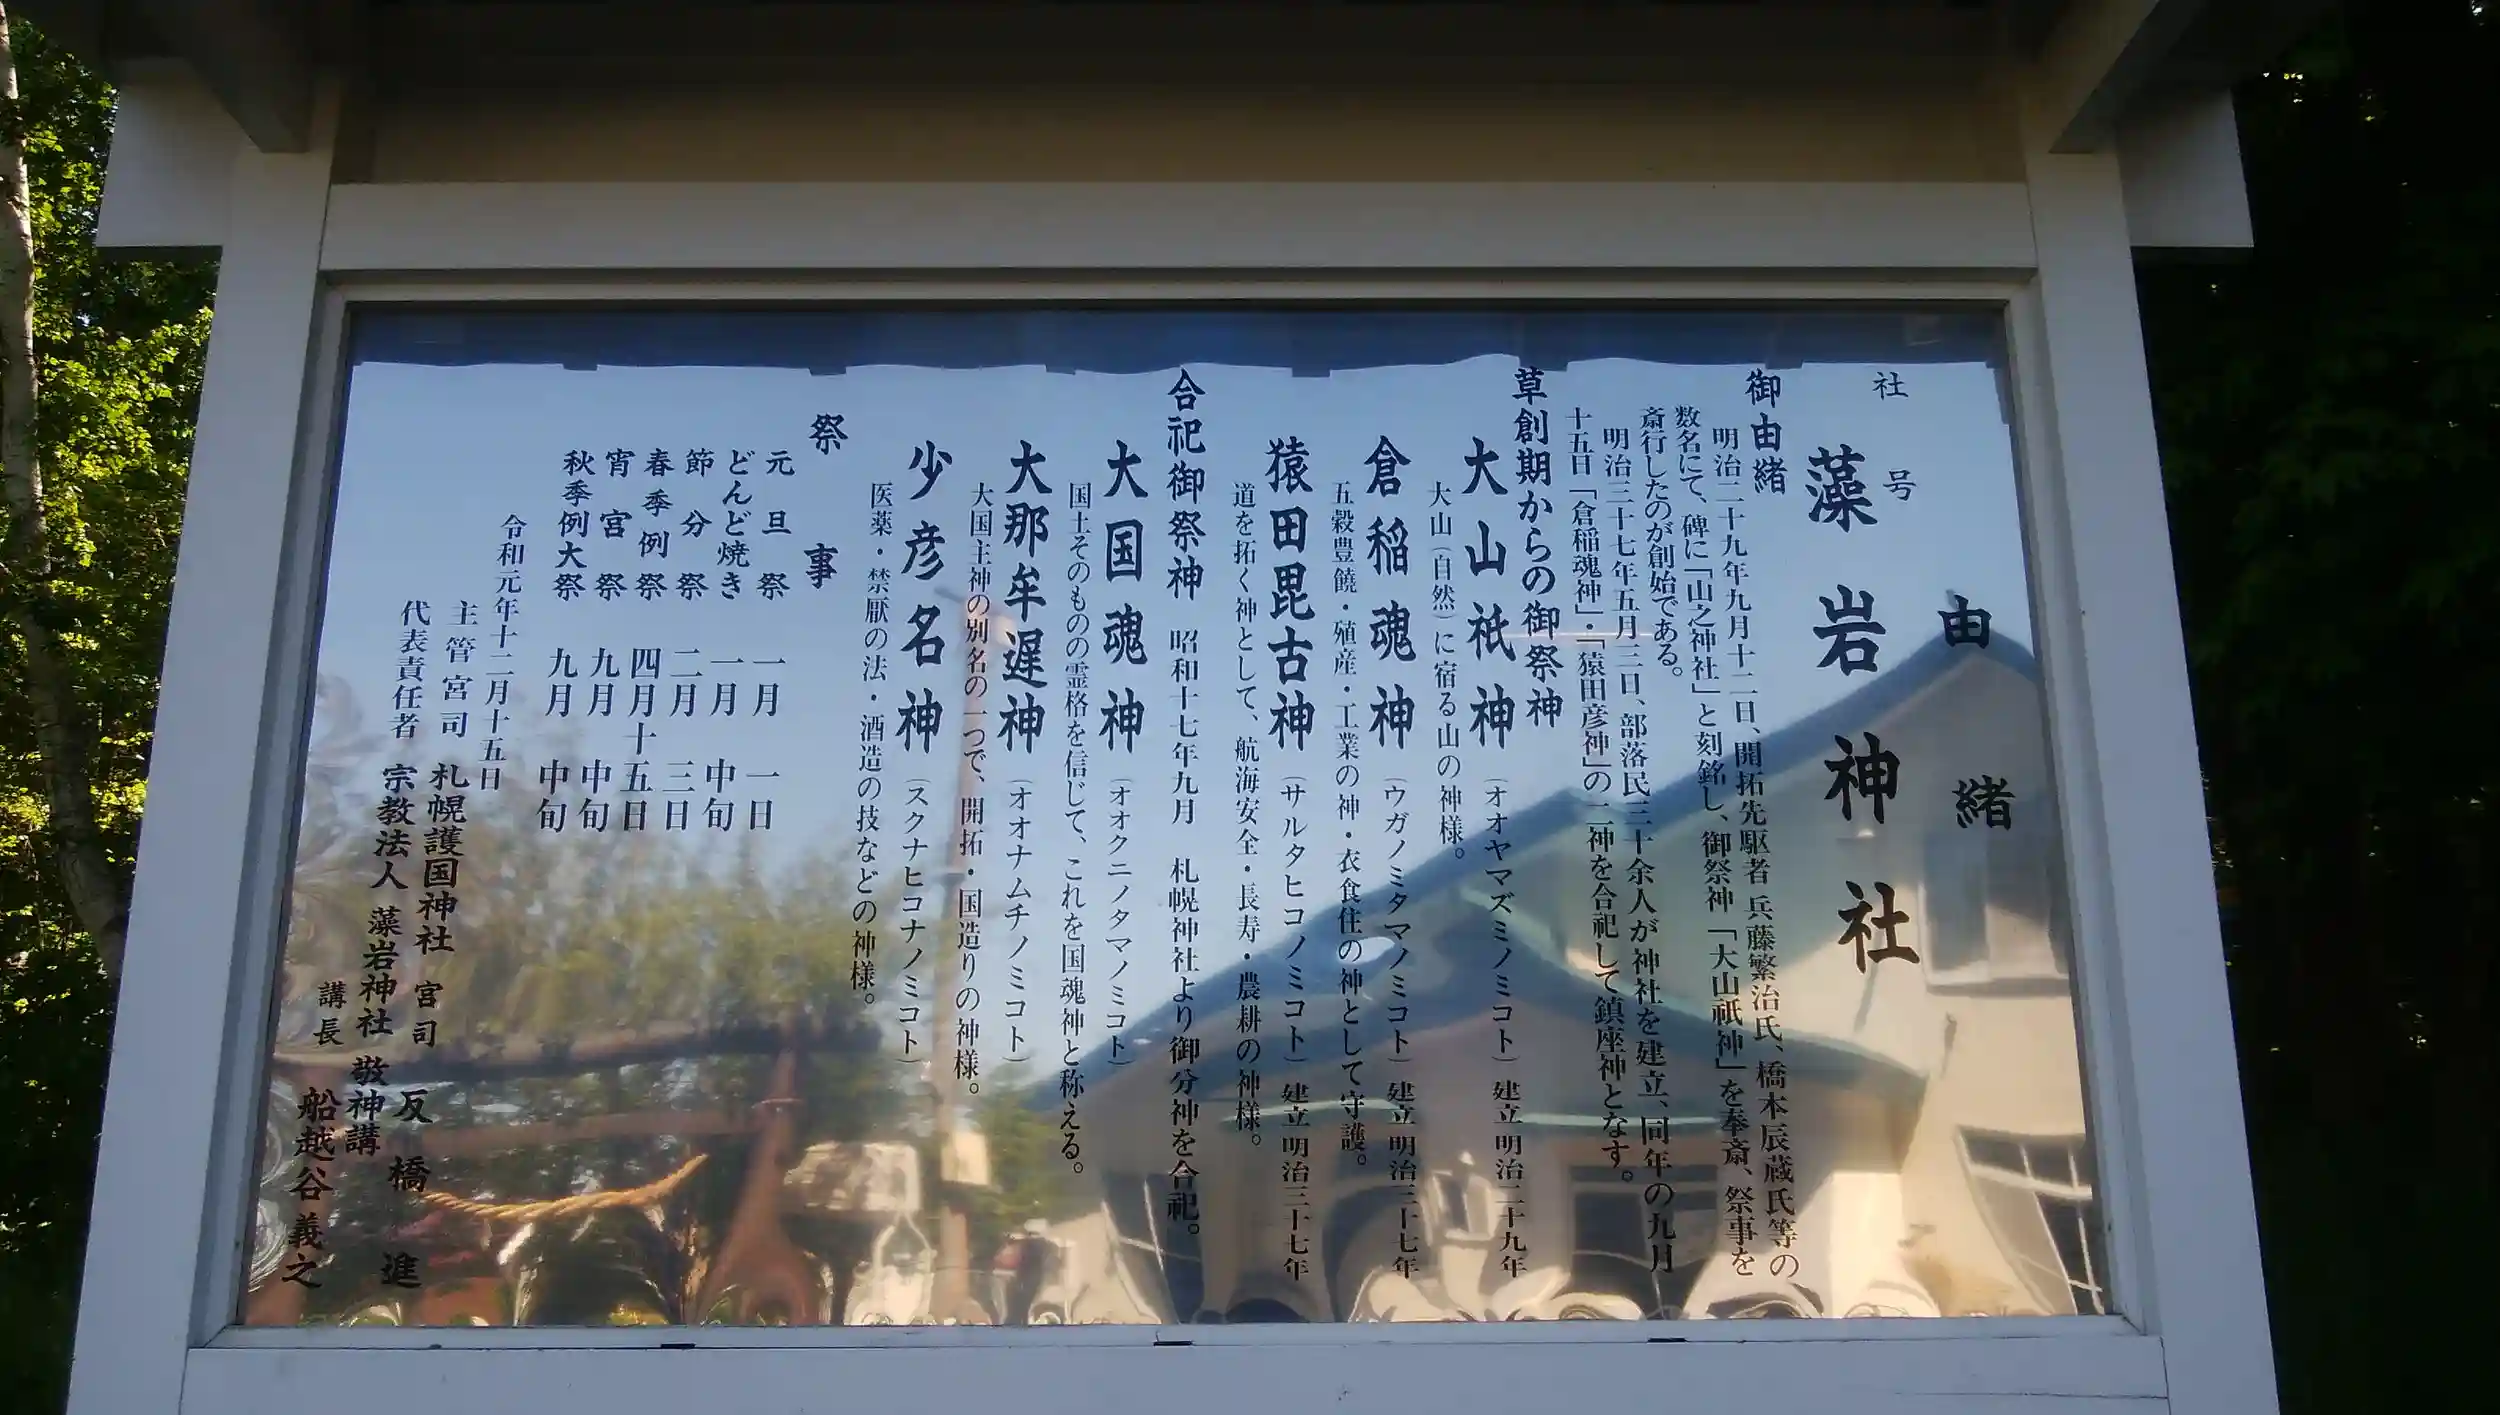 由緒
社号
藻岩神社
御由緒
明治二十九年九月十二日、開拓先駆者 兵藤繁治氏、橋本辰蔵氏等の
数名にて、碑に「山之神社」と刻銘し、御祭神「大山祇神」を奉斎、祭事を
斎行したのが創始である。
明治三十七年五月三日、部落民三十余人が神社を建立、同年の九月
十五日「倉稲魂神」・「猿田彦神」の二神を合祀して鎮座神となす。
草創期からの御祭神
大山祇神（オオヤマズミノミコト）建立 明治二十九年
大山（自然）に宿る山の神様。
倉稲魂神（ウガノミタマノミコト）建立 明治三十七年
五穀豊饒・殖産・工業の神・衣食住の神として守護。
猿田毘古神（サルタヒコノミコト）建立 明治三十七年
道を拓く神として、航海安全・長寿・農耕の神様。
合祀御祭神 昭和十七年九月 札幌神社より御分神を合祀。
大国魂神（オオクニノタマノミコト）
国土そのものの霊格を信じて、これを国魂神と称える。
大那牟遅神（オオナムチノミコト）
大国主神の別名の一つで、開拓・国造りの神様。
少彦名神（スクナヒコナノミコト）
医薬・禁厭の法・酒造の技などの神様。
祭事
元旦祭 一月一日
どんど焼き 一月中旬
節分祭 二月三日
春季例祭 四月十五日
宵宮祭 九月中旬
秋季例大祭 九月中旬
令和元年十二月十五日
主管宮司 札幌護国神社 宮司 反橋 進
代表責任者 宗教法人 藻岩神社 敬神講
講長 船越谷 義之